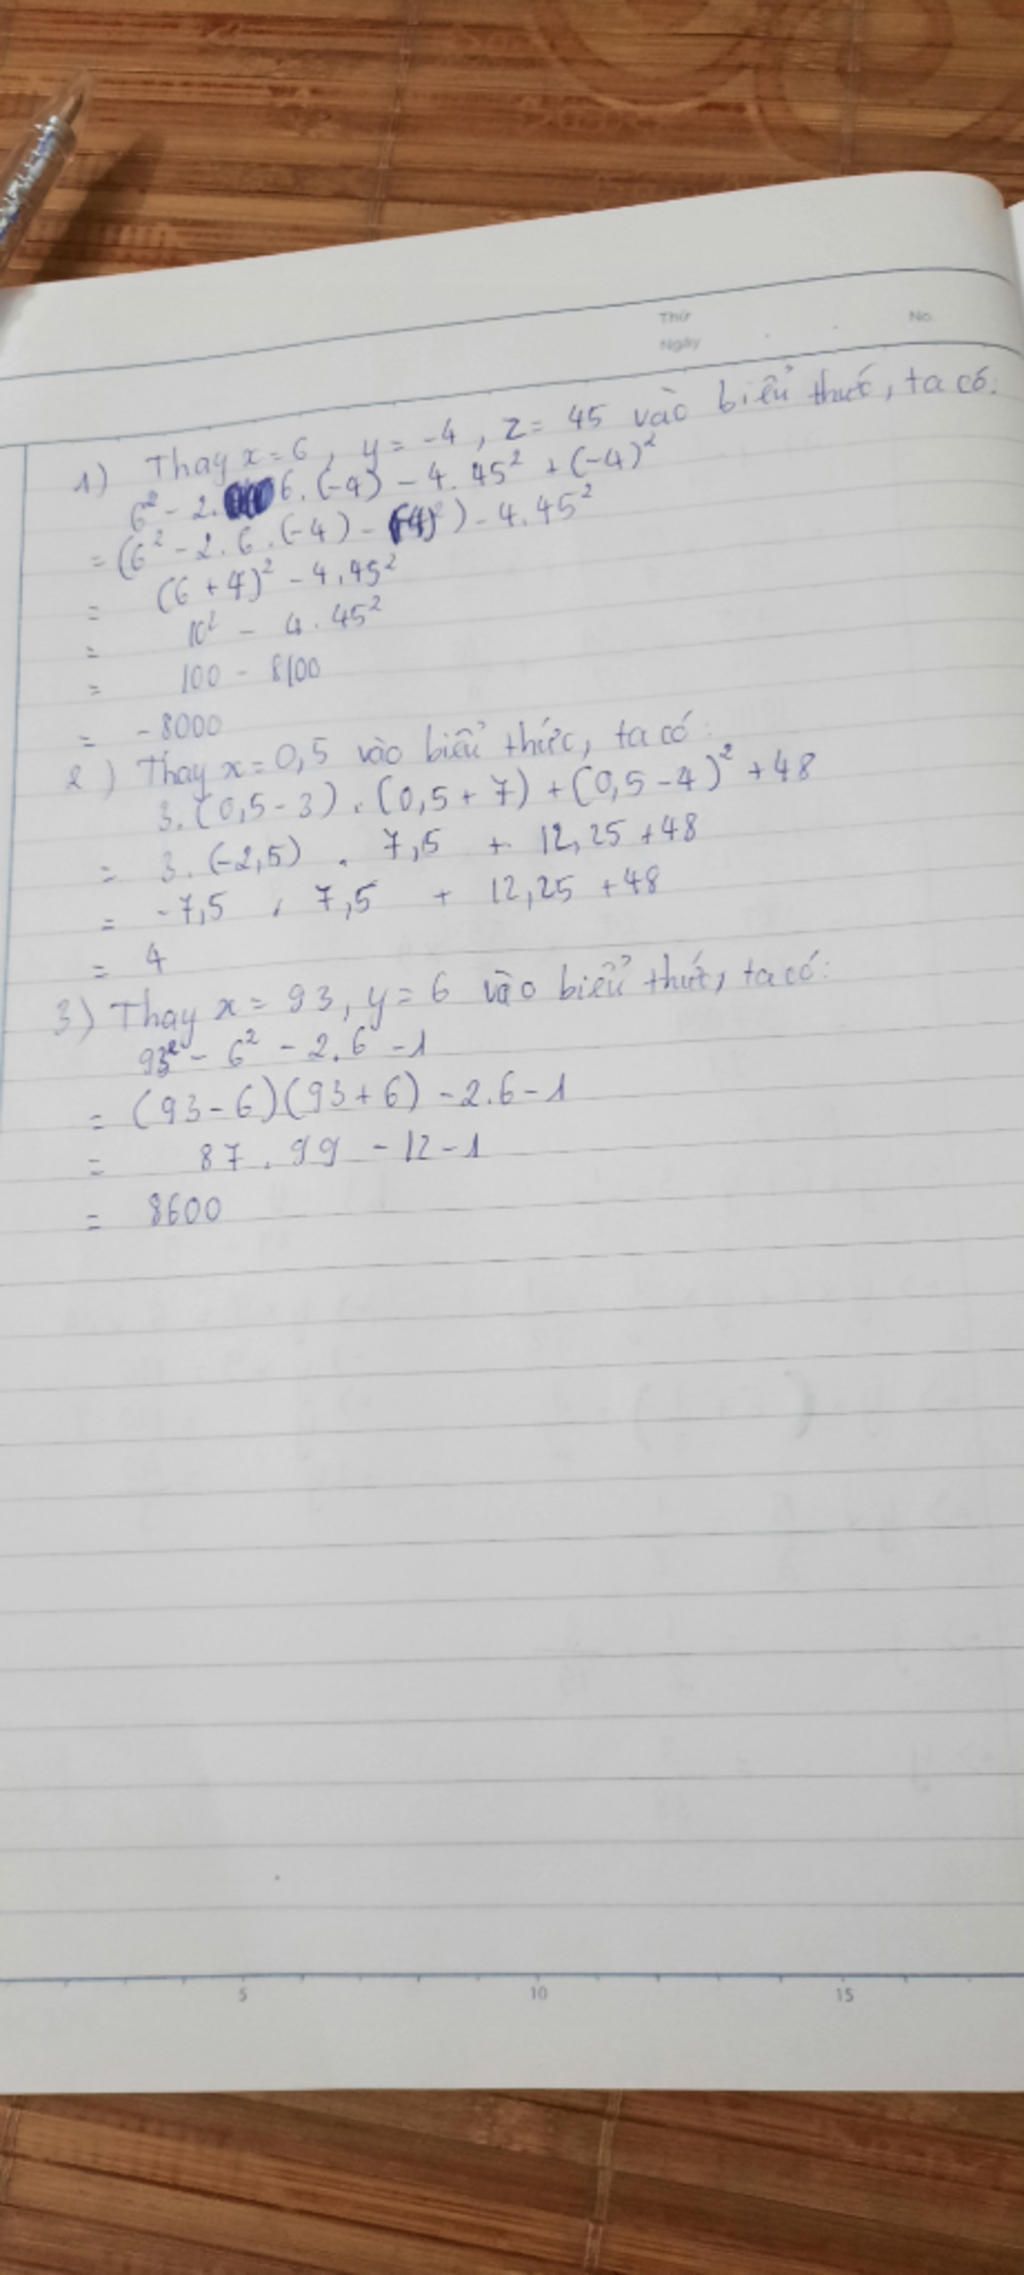 Thứ
No.
Ngày
1) Thay x = 6, y = -4, z = 45 vào biểu thức, ta có:
6² - 2. 6. (-4) - 4. 45² + (-4)²
= (6² - 2. 6. (-4) - (-4)²) - 4. 45²
= (6 + 4)² - 4. 45²
= 10² - 4. 45²
= 100 - 8100
= -8000
2) Thay x = 0,5 vào biểu thức, ta có:
3. (0,5 - 3). (0,5 + 7) + (0,5 - 4)² + 48
= 3. (-2,5) . 7,5 + 12,25 + 48
= -7,5 . 7,5 + 12,25 + 48
= 4
3) Thay x = 93, y = 6 vào biểu thức, ta có:
93² - 6² - 2. 6 - 1
= (93 - 6)(93 + 6) - 2. 6 - 1
= 87 . 99 - 12 - 1
= 8600
5 10 15